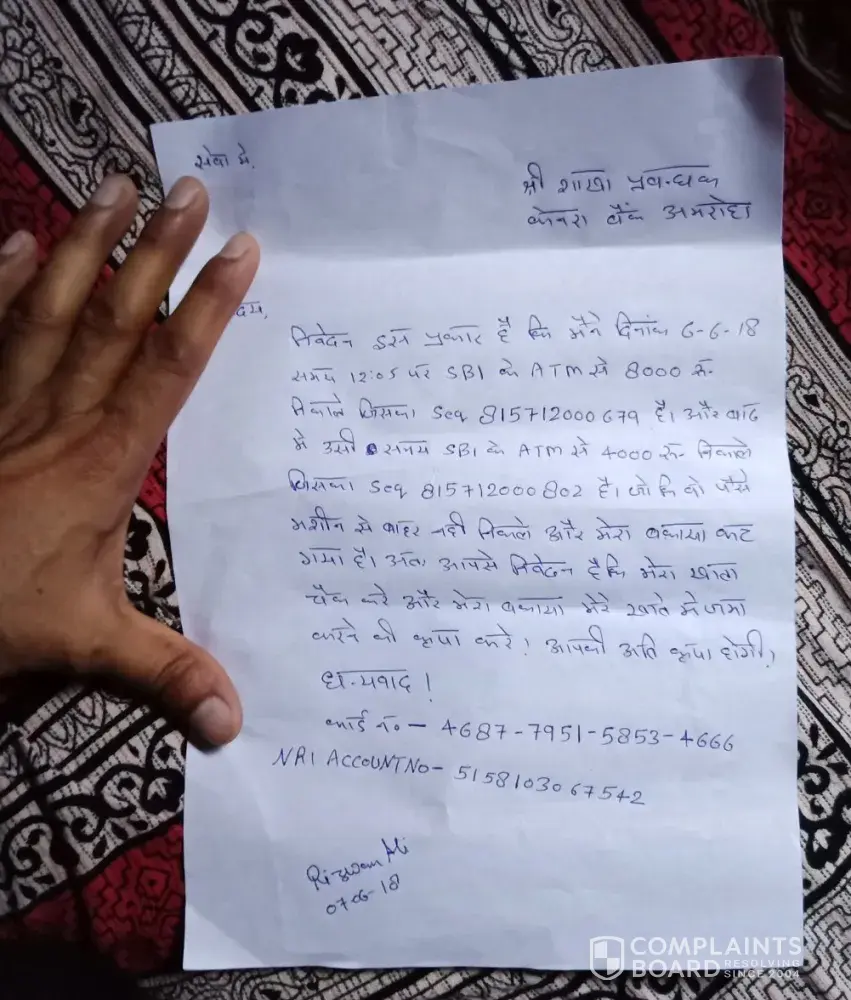 सेवा मे,
श्री शाखा प्रबन्धक
केनरा बैंक अमरोहा
दय,
निवेदन इस प्रकार है कि मैंने दिनांक 6-6-18
समय 12:05 पर SBI के ATM से 8000 रु-
निकाले जिसका Seq 815712000679 है। और बाद
मे उसी समय SBI के ATM से 4000 रु- निकाले
जिसका Seq 815712000802 है। जो कि वो पैसे
मशीन से बाहर नही निकले और मेरा बकाया कट
गया है। अतः आपसे निवेदन है कि मेरा खाता
चैक करे और मेरा बकाया मेरे खाते मे जमा
करने की कृपा करे! आपकी अति कृपा होगी!
धन्यवाद!
कार्ड नं०- 4687-7951-5853-4666
NRI ACCOUNT No- 5158103067542
Rizwan Ali
07-06-18
COMPLAINTS
BOARD RESOLVING SINCE 2004